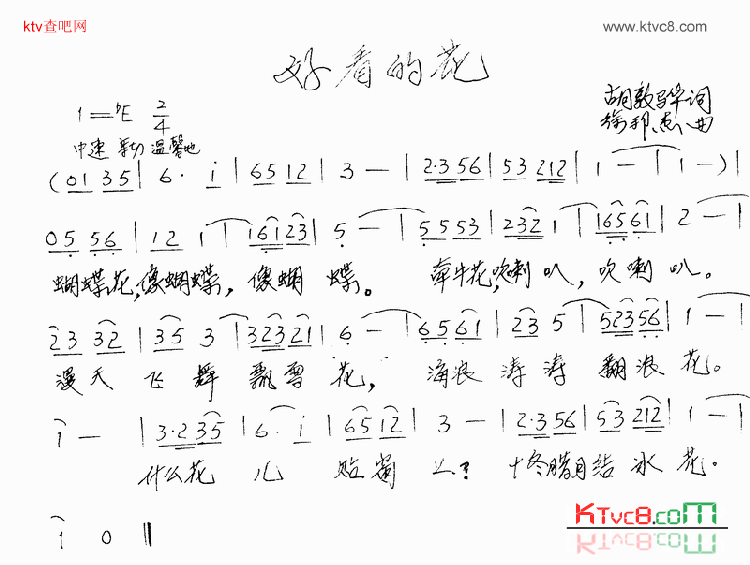 ktv查吧网
www.ktvc8.com
好看的花
1=♭E 2/4
胡敦骅词
徐邦杰曲
中速 亲切 温馨地
(01 35 | 6· i | 65 12 | 3 — | 2·3 56 | 53 212 | 1 — | 1 —) |
05 56 | 12 1 | 161 23 | 5 — | 55 53 | 232 1 | 165 61 | 2 — |
蝴蝶花,像蝴蝶,像蝴蝶。 牵牛花,吹喇叭,吹喇叭。
23 32 | 35 3 | 323 21 | 6 — | 65 61 | 23 5 | 523 56 | 1 — |
漫天飞舞飘雪花, 海浪涛涛翻浪花。
i — | 3·2 35 | 6· i | 65 12 | 3 — | 2·3 56 | 53 212 | 1 — |
什么花儿贴窗上? 十冬腊月结冰花。
i 0 ‖
KTvc8.com